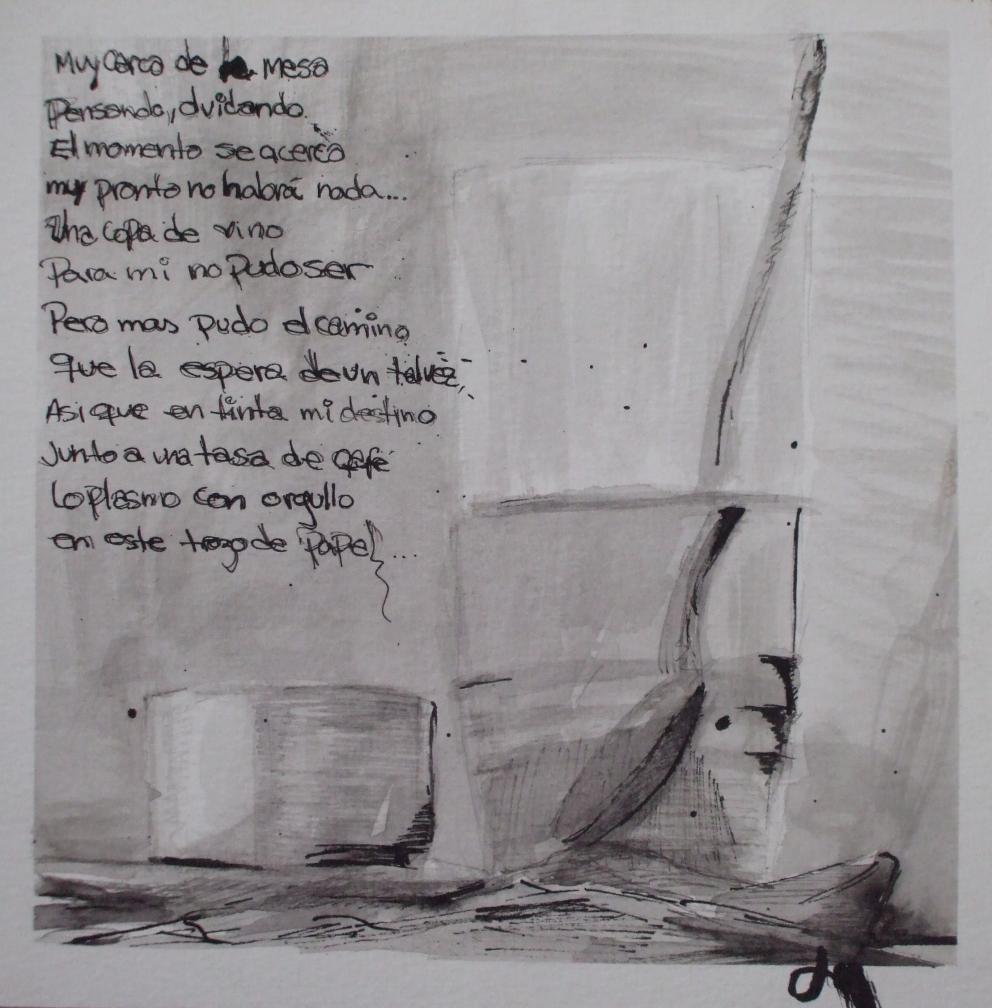 Muy cerca de la mesa
Pensando, dvidando.
El momento se acerca
muy pronto no habrá nada...
Una copa de vino
Para mi no pudo ser
Pero mas pudo el camino
que la espera de un talvez,
Asi que en tinta mi destino
Junto a una tasa de café
Lo plasmo con orgullo
en este trozo de papel...